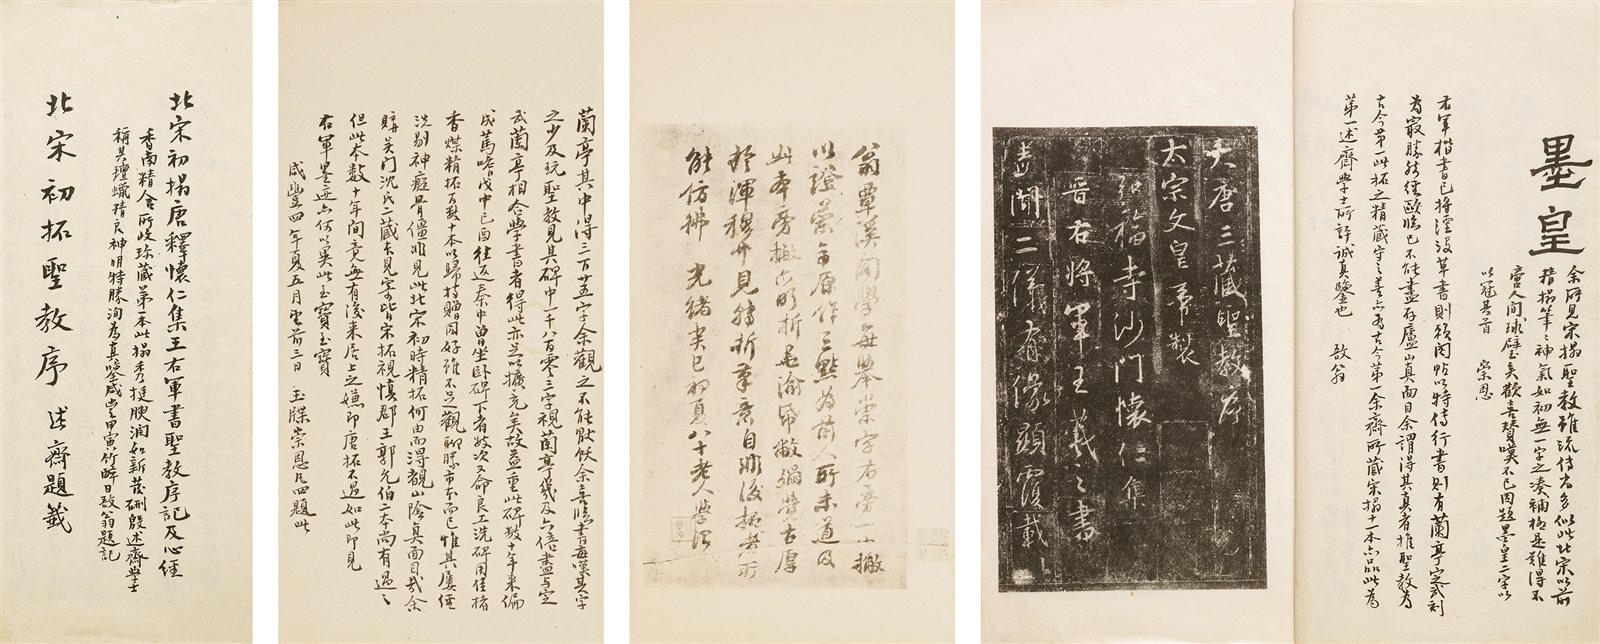 墨皇
余所見宋搨聖教雖流傳尚多似此北宋以前
精搨筆筆神氣如初無一字之湊補者是難得不
啻人間球璧矣歡喜贊嘆不已因題墨皇二字以
以冠其首 崇恩
右軍楷書已將湮沒草書則賴閣帖以特傳行書則有蘭亭定武刻
為最勝然經歐臨已不能盡存廬山真面目余謂得其真者推聖教為
古今第一此拓之精藏守之善亦為古今第一余齋所藏宋搨十一本亦品此為
第一述齋學士所許誠真鑒也 敔翁
大唐三藏聖教序
太宗文皇帝製
弘福寺沙門懷仁集
晉右將軍王羲之書
盖聞二儀有像顯覆載
翁覃溪閣學每舉崇字右旁一小撇
以證字原作三點為前人所未道及
此本旁撇亦明晰
於渾穆中見鋒折筆意自非後拓者所
能仿彿 光緒癸巳初夏八十老人
蘭亭其中得三百廿五字余觀之不能厭飫余喜臨書每嘆其字
之少及玩聖教見其碑中一千八百零三字視蘭亭幾及六倍盡與定
武蘭亭相合學書者得此亦足以擴充矣故益重此碑數十年來偏
成篤嗜戊申己酉往返秦中曾坐卧碑下者好次又命良工洗碑用佳楮
香煤精拓百數十本以歸持贈同好雖不足觀聊勝市本而已惟其屢經
洗剔神癡骨僵非見此北宋初時精拓何由而得觀山陰真面目哉余
購吳門沈氏二藏本見字皆宋拓視慎郡王郭允伯二本尚有過之
但此本數十年間竟無有後來居上之嫌即唐拓不過如此即見
右軍墨迹亦何以異此至寶至寶
咸豐四年夏五月望前三日 玉牒崇恩凡四題此
北宋初搨唐釋懷仁集王右軍書聖教序記及心經
香南精舍所收珍藏第一本此搨秀挺腴潤如新發硎殷述齋學士
稱其氊蠟精良神明特勝洵為真鑒咸豐甲寅竹醉日敔翁題記
北宋初拓聖教序 述齋題籤